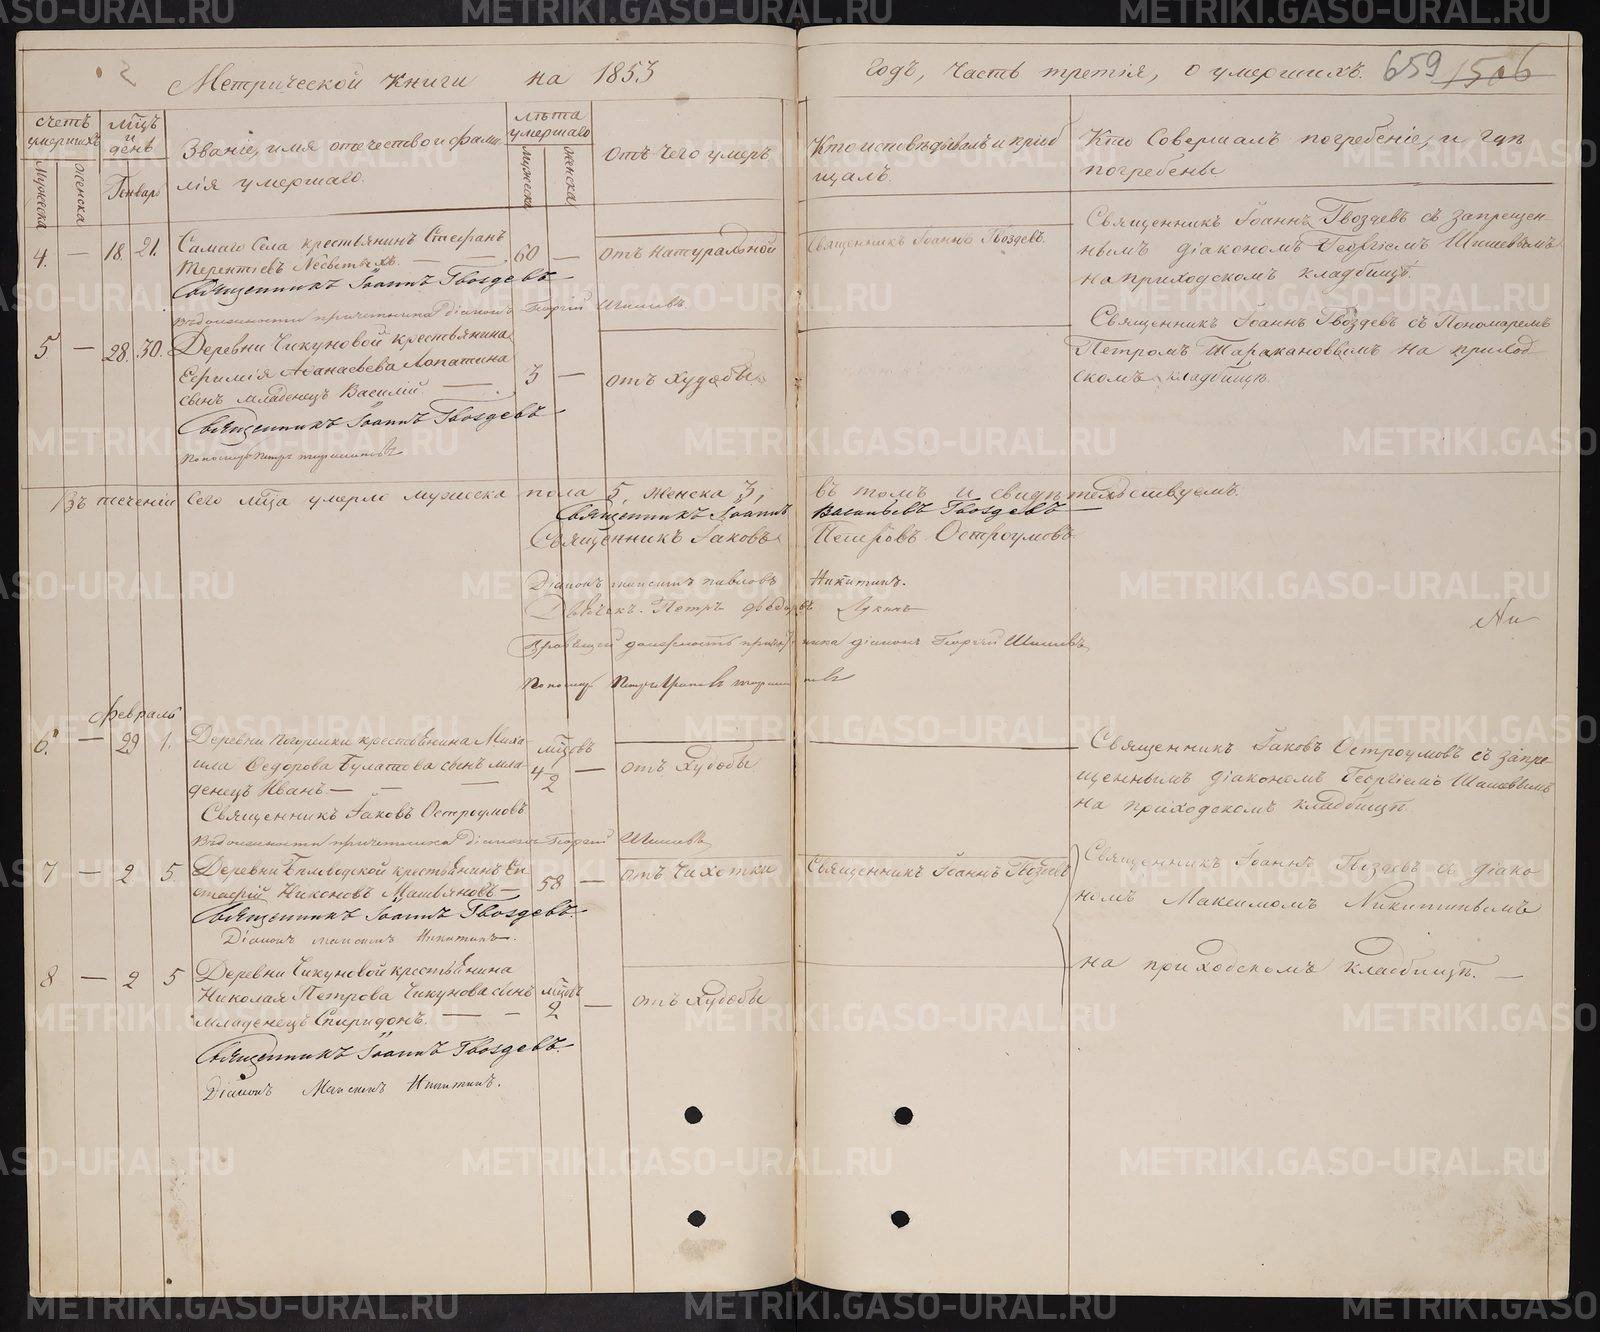 Метрической книги на 1853 годъ, часть третія, о умершихъ. 659 1506
счетъ умершихъ
мѣсяцъ и день
Званіе, имя отечество и фамилія умершаго.
лѣта умершаго
Отъ чего умеръ
Кто исповѣдывалъ и пріобщалъ.
Кто Совершалъ погребеніе, и гдѣ погребены
Мужеска Женска
Генварь
Мужеска Женска
4. — 18. 21.
Самаго Села крестьянинъ Стефанъ
Терентіевъ
60 —
отъ натуральной
Священникъ Іоаннъ Гвоздевъ.
Священникъ Іоаннъ Гвоздевъ съ запрещеннымъ діакономъ Георгіемъ Шишевымъ
на приходскомъ кладбищѣ.
Священникъ Іоаннъ Гвоздевъ
Въ должности причетника діаконъ Георгій Шишевъ
5 — 28. 30.
Деревни Чикуновой крестьянина
Ефимія Аѳанасьева Лопатина
сынъ младенецъ Василій.
3 —
отъ худобы
Священникъ Іоаннъ Гвоздевъ съ Пономаремъ
Петромъ Таракановымъ на приходскомъ кладбищѣ.
Священникъ Іоаннъ Гвоздевъ
Пономарь Петръ Таракановъ
Въ теченіи сего мѣсяца умерло мужеска пола 5, женска 3, въ томъ и свидѣтельствуемъ.
Священникъ Іоаннъ Васильевъ Гвоздевъ
Священникъ Іаковъ Петровъ Остроумовъ
Діаконъ Максимъ Павловъ Никитинъ.
Дьячекъ Петръ Федоровъ Луканъ
Правящій должность причетника діаконъ Георгій Шишевъ
Пономарь Петръ
Февраль
6. — 29 1.
Деревни крестьянина Михаила Ѳедорова Булатова сынъ младенецъ Иванъ —
мѣсяцовъ
4 2 —
отъ Худобы
Священникъ Іаковъ Остроумовъ съ запрещеннымъ діакономъ Георгіемъ Шишевымъ
на приходскомъ кладбищѣ.
Священникъ Іаковъ Остроумовъ
Въ должности причетника діаконъ Георгій Шишевъ
7 — 2 5
Деревни Бѣловодской крестьянинъ
Никоновъ
58 —
отъ Чихотки
Священникъ Іоаннъ Гвоздевъ
Священникъ Іоаннъ Гвоздевъ съ діакономъ Максимомъ Никитинымъ
на приходскомъ кладбищѣ. —
Священникъ Іоаннъ Гвоздевъ.
Діаконъ Максимъ Никитинъ.
8 — 2 5
Деревни Чикуновой крестьянина
Николая Петрова Чикунова сынъ
младенецъ Спиридонъ.
мѣсяцовъ
2 —
отъ Худобы
Священникъ Іоаннъ Гвоздевъ.
Діаконъ Максимъ Никитинъ.
METRIKI.GASO-URAL.RU